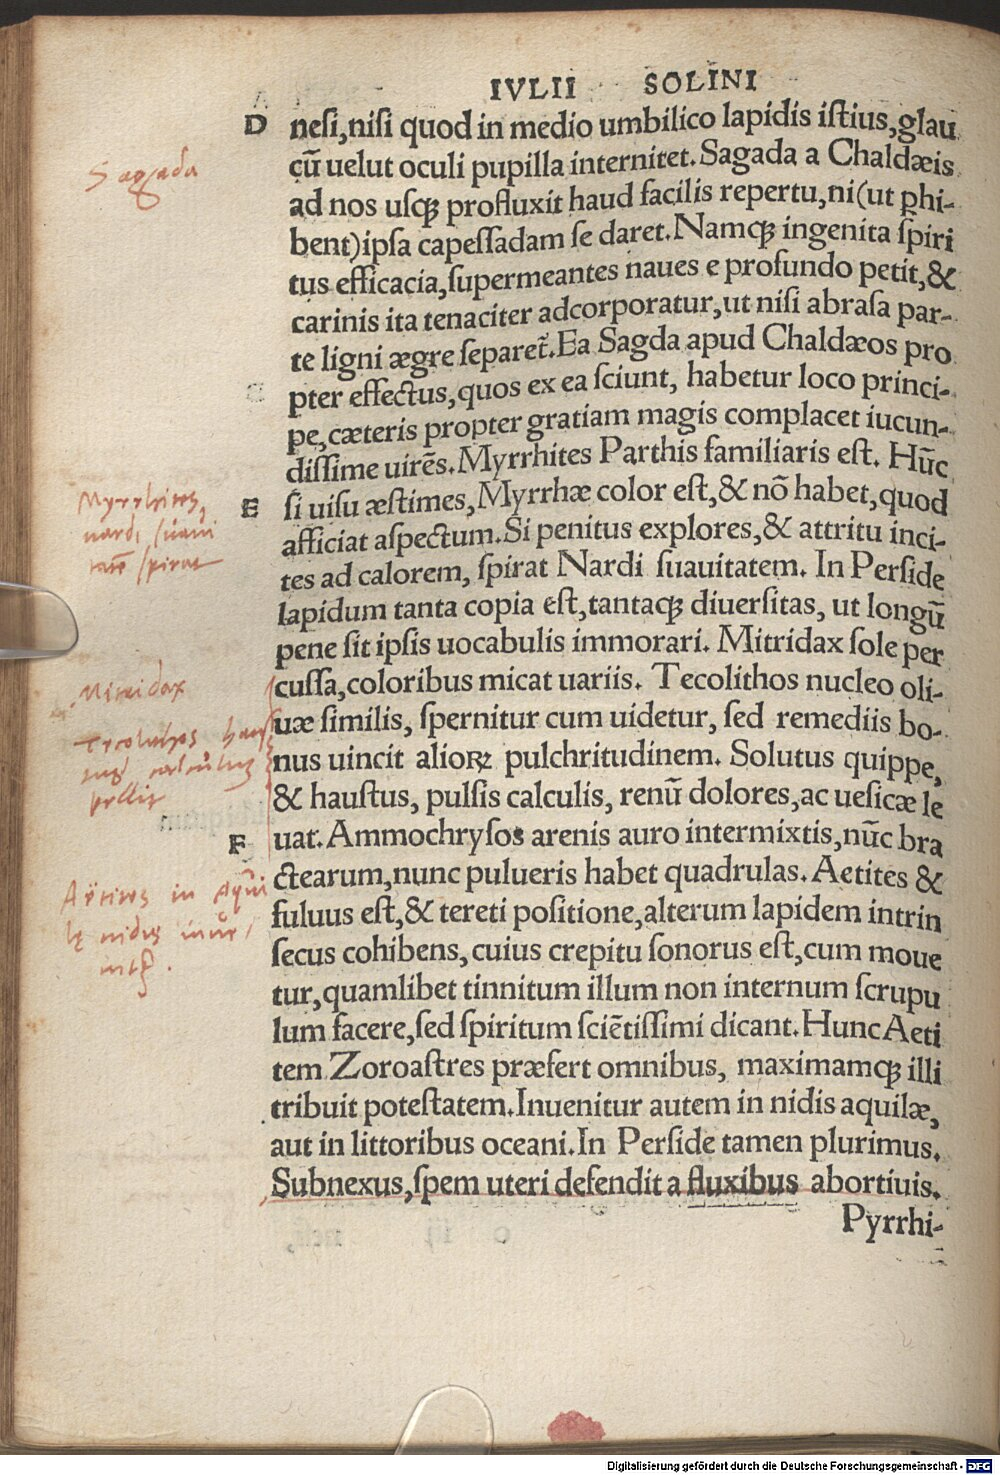 IVLII SOLINI
D neſi,niſi quod in medio umbilico lapidis iſtius,glau
Sagada
cũ uelut oculi pupilla internitet.Sagada a Chaldæis
ad nos uſq; profluxit haud facilis repertu,ni(ut phi-
bent)ipſa capeſſadam ſe daret.Namq; ingenita ſpiri
tus efficacia,ſupermeantes naues e profundo petit,&
carinis ita tenaciter adcorporatur,ut niſi abraſa par-
te ligni ægre ſeparet̃.Ea Sagda apud Chaldæos pro
pter effectus,quos ex ea ſciunt, habetur loco princi-
pe,cæteris propter gratiam magis complacet iucun-
diſſime uirẽs.Myrrhites Parthis familiaris eſt. Hũc
Myrrhites
nardi ſuaui
tatẽ ſpirat
E ſi uiſu æſtimes,Myrrhæ color eſt,& nõ habet,quod
afficiat aſpectum.Si penitus explores,& attritu inci-
tes ad calorem, ſpirat Nardi ſuauitatem. In Perſide
lapidum tanta copia eſt,tantaq; diuerſitas, ut longũ
pene ſit ipſis uocabulis immorari. Mitridax ſole per
Mitridax
cuſſa,coloribus micat uariis. Tecolithos nucleo oli-
Tecolithos
uæ ſimilis, ſpernitur cum uidetur, ſed remediis bo-
nus uincit alioꝝ pulchritudinem. Solutus quippe,
pellit
& hauſtus, pulſis calculis, renũ dolores,ac ueſicæ le
F uat.Ammochryſos arenis auro intermixtis,nũc bra
Aëtites in Aqui
lę nidis
ctearum,nunc pulueris habet quadrulas.Aetites &
fuluus eſt,& tereti poſitione,alterum lapidem intrin
ſecus cohibens,cuius crepitu ſonorus eſt,cum moue
tur,quamlibet tinnitum illum non internum ſcrupu
lum facere,ſed ſpiritum ſciẽtiſſimi dicant.Hunc Aeti
tem Zoroaſtres præfert omnibus, maximamq; illi
tribuit poteſtatem.Inuenitur autem in nidis aquilæ,
aut in littoribus oceani.In Perſide tamen plurimus.
Subnexus,ſpem uteri defendit a fluxibus abortiuis.
Pyrrhi-
Digitalisierung gefördert durch die Deutsche Forschungsgemeinschaft - DFG